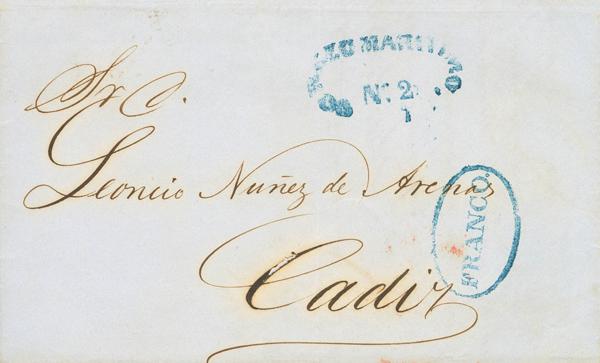 CORREO MARITIMO
Nº 2
1
Sr. D.
Leoncio Nuñez de Arenas
FRANCO.
Cadiz